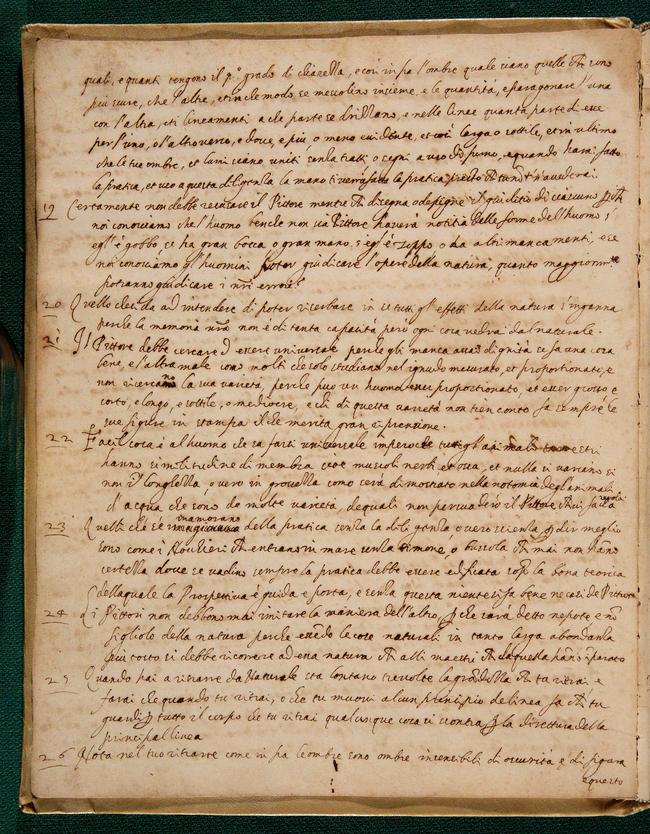 quali, e quanti tengono il p.º grado di chiarezza, e così infra l'ombre quale siano quelle che sono
più scure, che l'altre, et in che modo se mescolino insieme, e le quantità, e paragonare l'una
con l'altra, et i lineamenti a che parte se drizzano, e nelle linee quanta parte di esse
per l'uno, o l'altro verso, e dove, e più, o meno evidente, et così larga o sottile, et in ultimo
che le tue ombre, et lumi siano uniti senza tratti, o segni a uso di fumo, e quando harai fatto
la pratica, et uso a questa diligenza la mano ti verrà fatta la pratica presto che tu non te n'avvederai
19 Certamente non debbe recusare il Pittore mentre che disegna o depigne il giuditio di ciascuno
noi conosciamo che l'huomo benche non sia Pittore haverà notitia delle forme del'huomo s'
egl'è gobbo, se ha gran bocca o gran mano, s'egl'è zoppo o ha altri mancamenti, e se
noi conosciamo gl'huomini poter giudicare l'opere della natura, quanto maggiorm.te
potranno giudicare i nr̃i errori
20 Quello che si da ad intendere di poter riserbare in se tutti gl'effetti della natura s'inganna
perche la memoria nr̃a non è di tanta capacità però ogni cosa vedrai dal naturale.
21 Il Pittore debbe cercare d'essere universale perche gli manca assai dignità se fa una cosa
bene, e l'altra male come molti che solo studiano nel ignudo mesurato, et proportionato, e
non ricercano la sua varietà, perche può un huomo esser proportionato, et esser grosso e
corto, e longo, e sottile, o mediocre, e chi di questa varietà non tien conto fa sempre le
sue figure in stampa il che merita gran riprensione.
22 Facil cosa è al'huomo che sa farsi universale imperoche tutti gl'animali terrestri
hanno similitudine di membra cioè muscoli nervi et ossa, et nulla si variano se
non in longhezza, o vero in grossezza come sarà dimostrato nella notomia degl'animali
d'acqua che sono de molte varietà, de quali non persuaderò il Pittore che vi faccia regola
23 Quelli che se inamorano della pratica senza la diligenza o vero scienza per dir meglio
sono come i Nochieri che entrano in mare senza timone, o bussola che mai non hano
certezza dove se vadino sempre la pratica debbe essere edificata sop.ª la bona teorica
della quale la Prospettiva è guida e porta, e senza questa niente si fa bene ne casi de Pittura
24 Li Pittori non debbono mai imitare la maniera dell'altro, perche sarà detto nepote e nõ
figliolo della natura perche essẽdo le cose naturali in tanta larga abondanza
più tosto si debbe ricorrere ad essa natura che alli maestri che da quella hano imparato
25 Quando hai a ritrarre da Naturale sta lontano tre volte la grãdezza che tu ritrai e
farai che quando tu ritrai, o che tu muovi alcun principio de linea fa che tu
guardi per tutto il corpo che tu ritrai qualunque cosa si scontra per la dirittura della
principal linea
26 Nota nel tuo ritrarre come infra le ombre sono ombre insensibili di oscurità e di figura
e questo